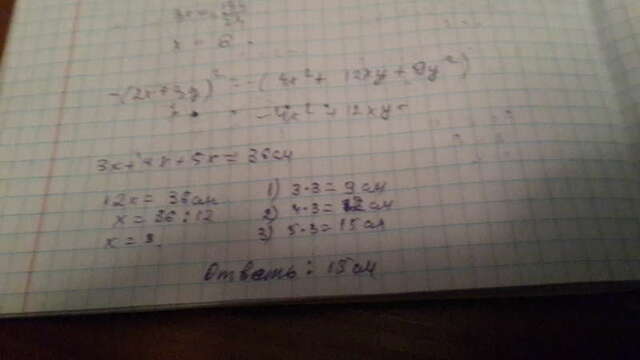 x = 6
-(2x+3y)² = -(4x² + 12xy + 9y²)
= -4x² + 12xy
3x+4x+5x = 36см
12x = 36см
x = 36 : 12
x = 3.
1) 3·3 = 9 см
2) 4·3 = 12 см
3) 5·3 = 15 см
Ответь: 15 см